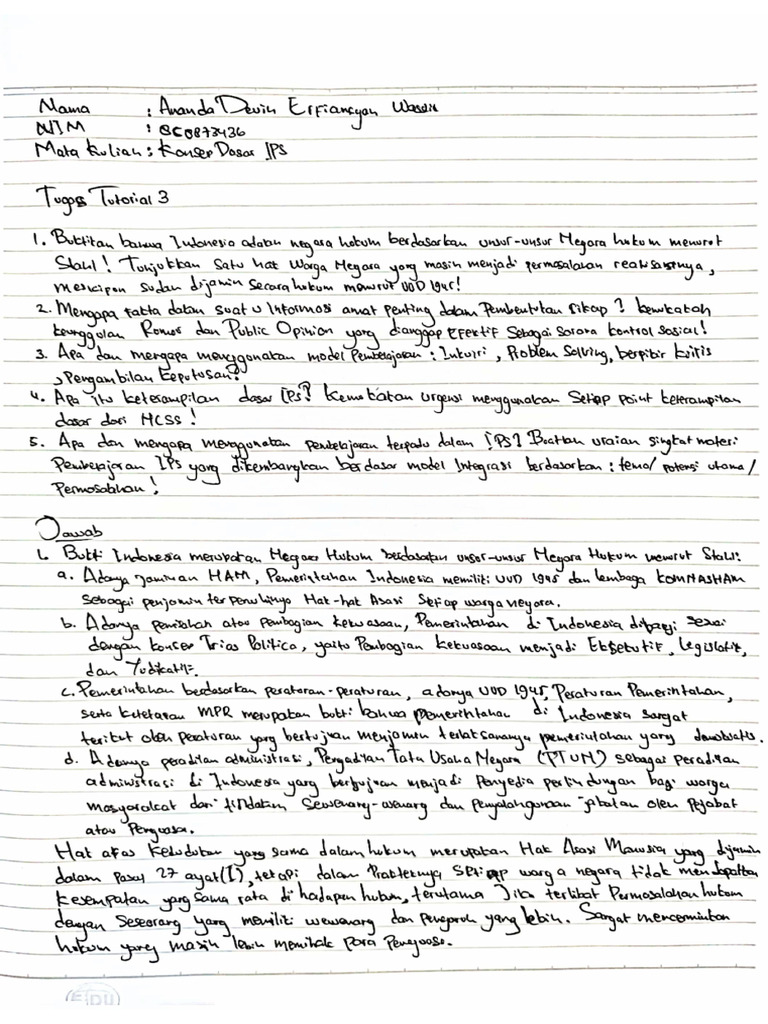 Nama : Ananda Devin Erfiansyah
NIM : 860873436
Mata Kuliah : Konsep Dasar IPS
Tugas Tutorial 3
1. Buktikan bahwa Indonesia adalah negara hukum berdasarkan unsur-unsur Negara hukum menurut
Stahl! Tunjukkan satu hak Warga Negara yang masih menjadi permasalahan realisasinya,
meskipun sudah dijamin secara hukum menurut UUD 1945!
2. Mengapa fakta dalam suatu Informasi amat penting dalam Pembentukan Sikap? kemukakan
keunggulan Rumor dan Public Opinion yang dianggap Efektif Sebagai Sarana kontrol sosial!
3. Apa dan mengapa menggunakan model Pembelajaran : Inkuiri, Problem Solving, berpikir kritis
, Pengambilan Keputusan?
4. Apa itu keterampilan dasar IPS? Kemukakan urgensi menggunakan Setiap point keterampilan
dasar dari NCSS!
5. Apa dan mengapa menggunakan pembelajaran terpadu dalam IPS? Buatlah uraian singkat materi
Pembelajaran IPS yang dikembangkan berdasar model Integrasi berdasarkan : tema/ potensi utama/
Permasalahan!
Jawab
1. Bukti Indonesia merupakan Negara Hukum berdasarkan unsur-unsur Negara Hukum menurut Stahl:
a. Adanya Jaminan HAM, Pemerintahan Indonesia memiliki UUD 1945 dan lembaga KOMNASHAM
sebagai penjamin terpenuhinya Hak-hak Asasi Setiap warga negara.
b. Adanya pemisahan atau Pembagian kekuasaan, Pemerintahan di Indonesia dibagi sesuai
dengan konsep Trias Politica, yaitu Pembagian Kekuasaan menjadi Eksekutif, Legislatif,
dan Yudikatif.
c. Pemerintahan berdasarkan peraturan-peraturan, adanya UUD 1945, Peraturan Pemerintahan,
serta ketetapan MPR merupakan bukti bahwa pemerintahan di Indonesia sangat
terikat oleh peraturan yang bertujuan menjamin terlaksananya pemerintahan yang demokratis.
d. Adanya peradilan administrasi, Pengadilan Tata Usaha Negara (PTUN) sebagai peradilan
administrasi di Indonesia yang bertujuan menjadi Penyedia perlindungan bagi warga
masyarakat dari tindakan Sewenang-wenang dan Penyalahgunaan jabatan oleh Pejabat
atau Penguasa.
Hak atas Kedudukan yang sama dalam hukum merupakan Hak Asasi Manusia yang dijamin
dalam pasal 27 ayat (1), tetapi dalam Prakteknya Setiap warga negara tidak mendapatkan
kesempatan yang sama rata di hadapan hukum, terutama Jika terlibat Permasalahan hukum
dengan Seseorang yang memiliki wewenang dan pengaruh yang lebih. Sangat mencerminkan
hukum yang masih lebih memihak para Penguasa.